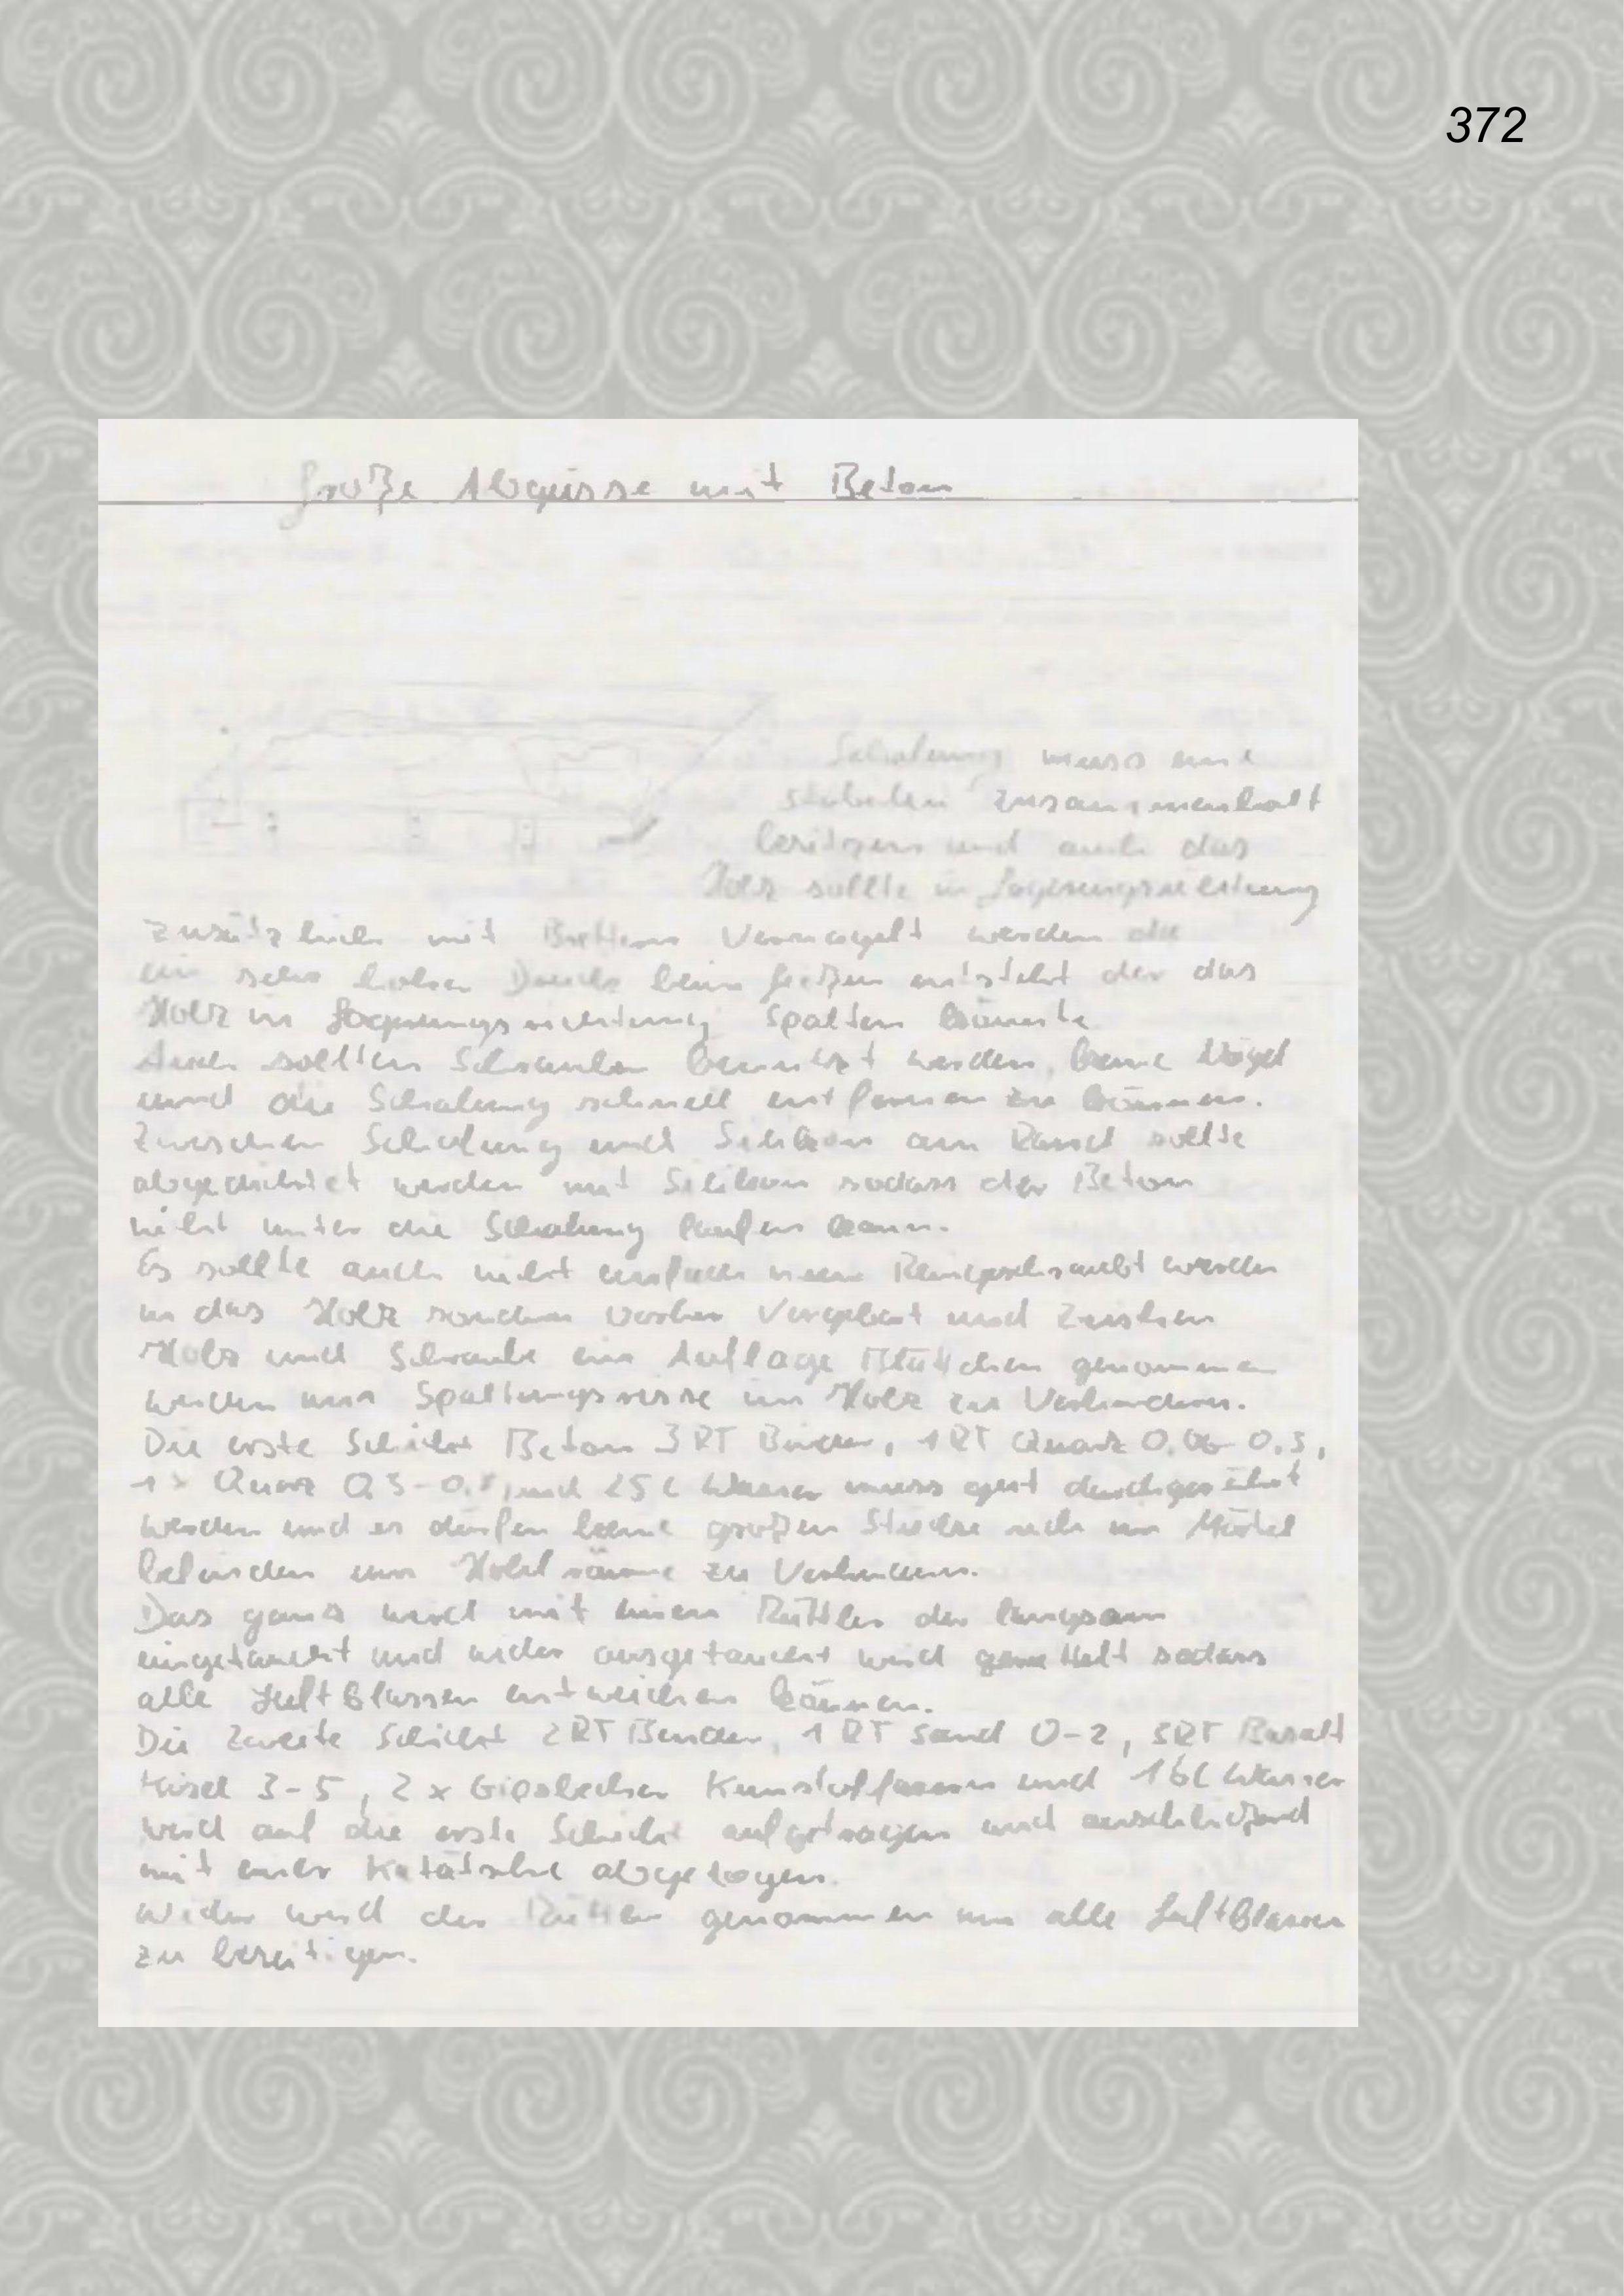 372
Große Abgüsse mit Beton
Schalung muss eine
stabielen zusammenhalt
besitzen und auch das
Holz sollte in
zusätzlich mit Brettern Vernagelt werden da
ein sehr hoher Druck beim gießen entsteht der das
Holz in Spalten könnte
Auch sollten Schrauben benutzt werden, keine Nägel
und die Schalung schnell entfernen zu können.
Zwischen Schalung und Silikon am Rand sollte
abgedichtet werden mit Silikon sodass der Beton
nicht unter die Schalung laufen kann.
Es sollte auch nicht einfach werden
in das Holz sondern vorher und Zwischen
Holz und Schraube ein Auflage Plättchen genommen
werden um Spaltungsrisse im Holz zu Verhindern.
Die erste Schicht Beton 3 RT Binder, 1 RT Quarz 0,06-0,3,
Quarz und 25 l Wasser muss gut
werden und es dürfen keine großen Stücke sich im Mörtel
befinden um Hohlräume zu Verhindern.
Das ganz wird mit einen Rüttler der langsam
eingetaucht und wider ausgetaucht wird sodass
alle Luftblassen entweichen können.
Die Zweite Schicht 2 RT Binder, 1 RT Sand 0-2, 3 RT Basalt
3-5, 2 x Gipsbecher und 16 l Wasser
wird auf die erste Schicht aufgetragen und anschließend
mit einer abgezogen.
Wider wird der Rüttler genommen um alle Luftblasen
zu